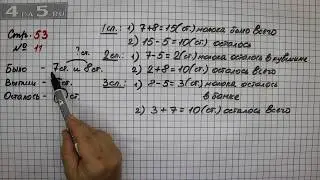 4PS.RU
Стр. 53
№ 11
? ст.
Было - 7 ст. и 8 ст.
Выпили -
Осталось - ст.
1 сп.: 1) 7+8=15(ст) молока было всего
2) 15-5=10(ст) осталось
2 сп.: 1) 7-5=2(ст) молока осталось в кувшине
2) 2+8=10(ст.) осталось всего
3 сп.: 1) 8-5=3(ст.) молока осталось
в банке
2) 3+7=10(ст) осталось всего